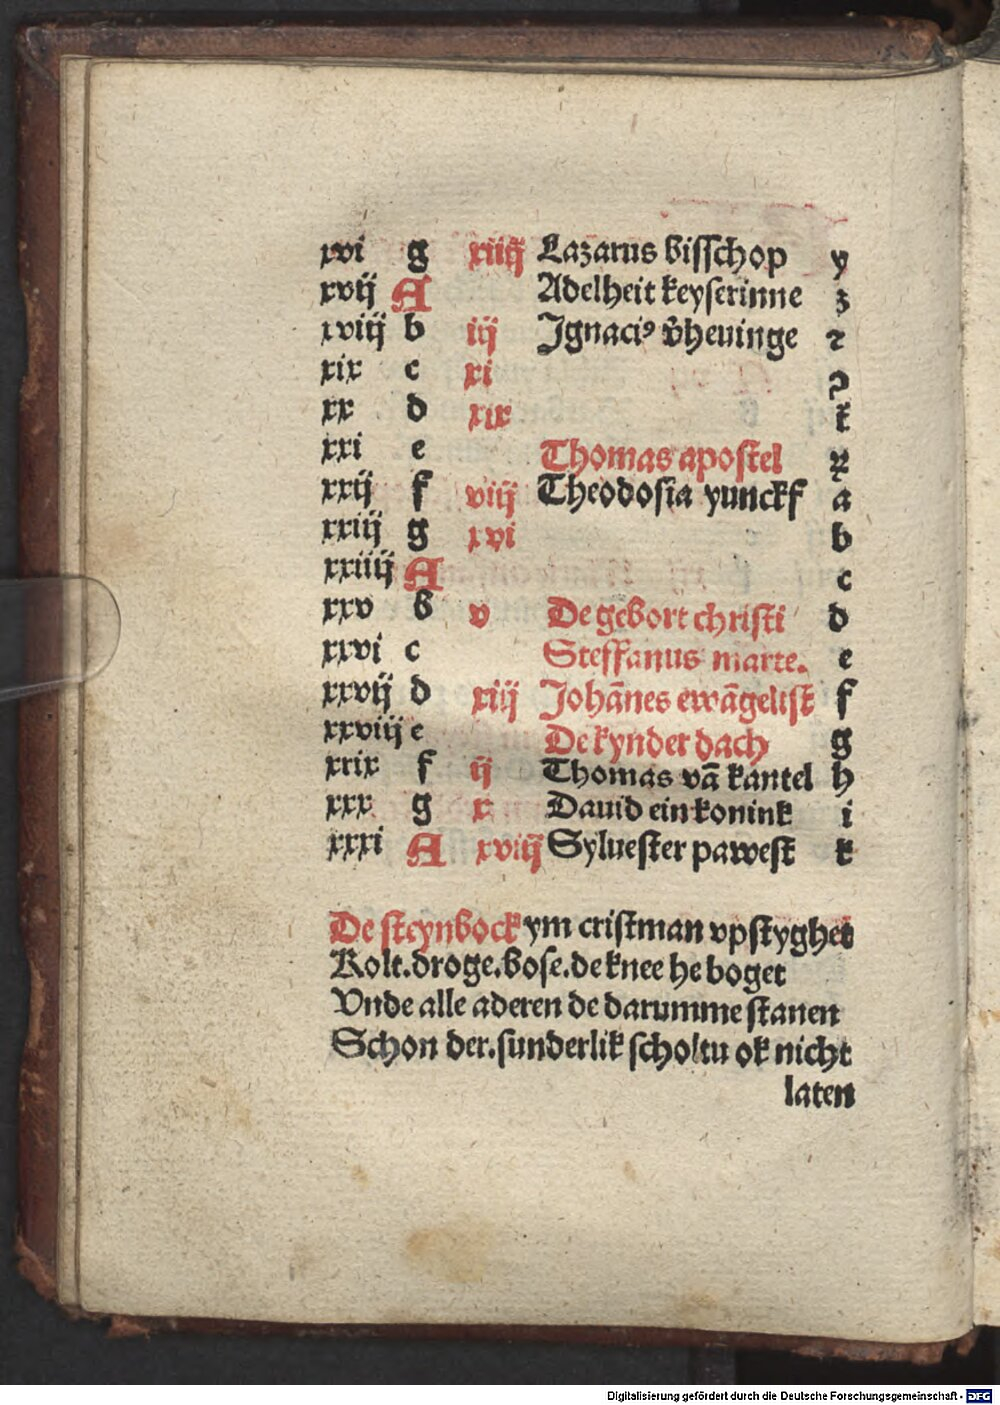 xvi g xiiij Lazarus bisschop y
xvij A Adelheit keyserinne z
xviij b iij Jgnaciꝰ v̄heuinge ꝛ
xix c xi ꝯ
xx d xix t
xxi e Thomas apostel ꝝ
xxij f viij Theodosia yunckf a
xxiij g xvi b
xxiiij A c
xxv b v De gebort christi d
xxvi c Steffanus marte. e
xxvij d xiij Johānes ewāgelist f
xxviij e De kynder dach g
xxix f ij Thomas vā kantel h
xxx g x Dauid ein konink i
xxxi A xviij Syluester pawest k
De steynbock ym cristman vpstyghet
Kolt. droge. bose. de knee he boget
Vnde alle aderen de darumme stanen
Schon der. sunderlik scholtu ok nicht
laten
Digitalisierung gefördert durch die Deutsche Forschungsgemeinschaft - DFG